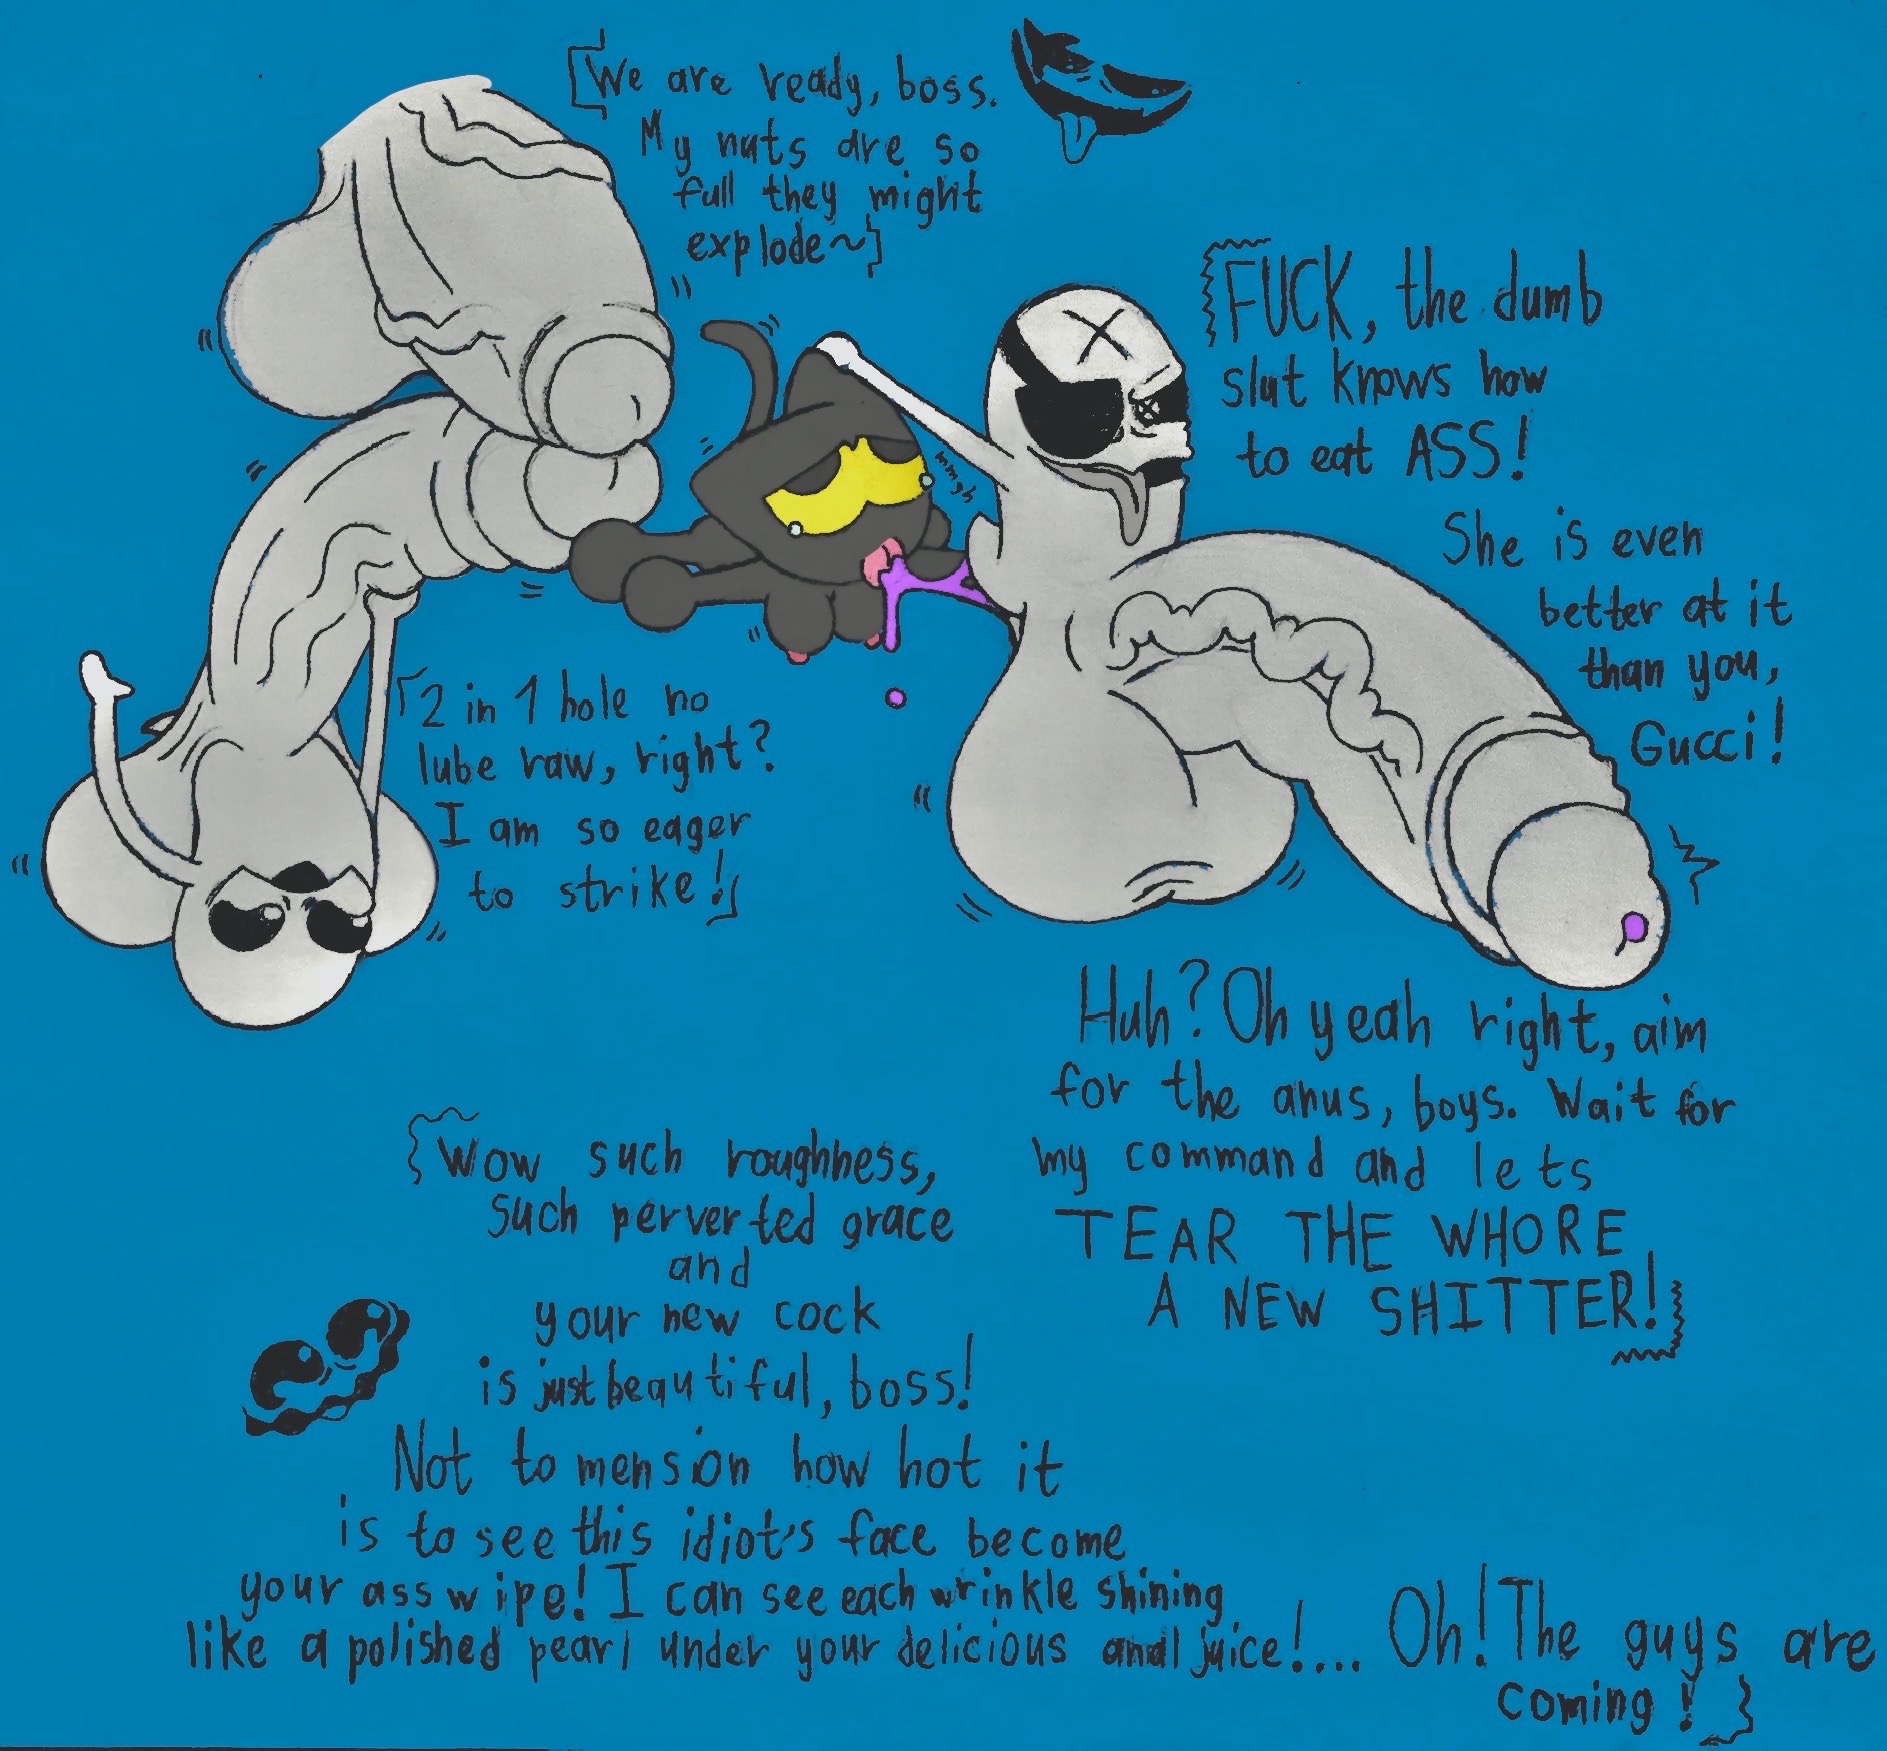 We are ready, boss.
My nuts are so
full they might
explode~
FUCK, the dumb
slut knows how
to eat ASS!
She is even
better at it
than you,
Gucci!
mmgh
2 in 1 hole no
lube raw, right?
I am so eager
to strike!
Huh? Oh yeah right, aim
for the anus, boys. Wait for
my command and lets
TEAR THE WHORE
A NEW SHITTER!
Wow such roughness,
such perverted grace
and
your new cock
is just beautiful, boss!
Not to mension how hot it
is to see this idiot's face become
your ass wipe! I can see each wrinkle shining
like a polished pearl under your delicious anal juice!.... Oh! The guys are
coming!